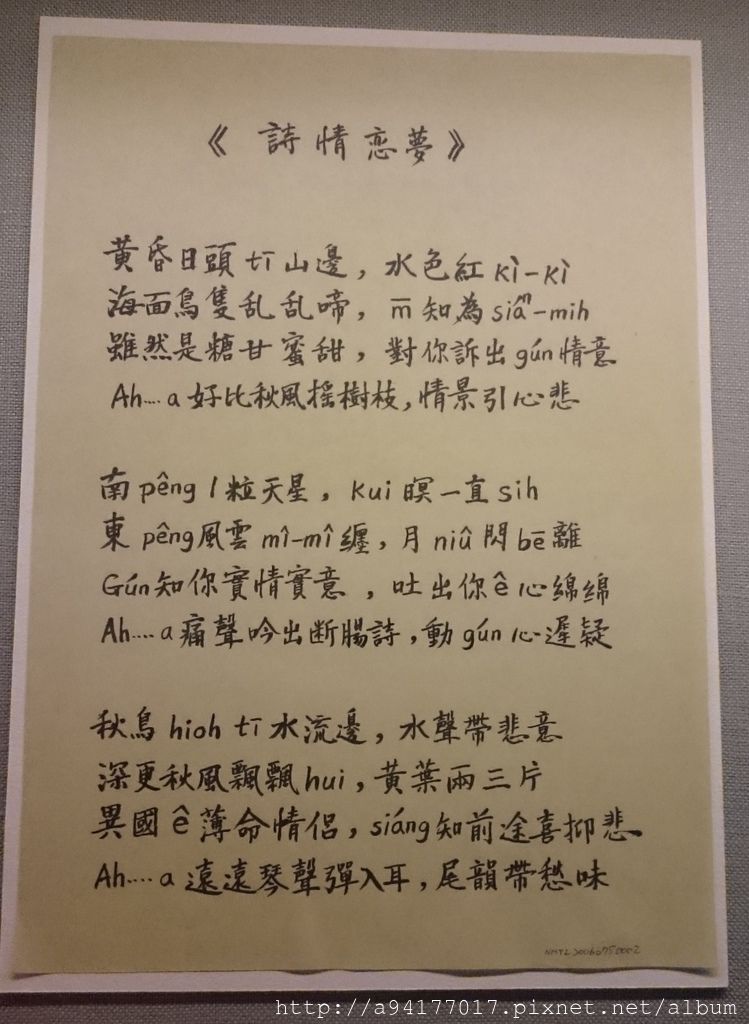 《詩情恋夢》
黄昏日頭 tī 山邊，水色紅 kì-kì
海面鳥隻乱乱啼，m̄ 知為 siáⁿ-mih
雖然是糖甘蜜甜，對你訴出 gún 情意
Ah....a 好比秋風搖樹枝，情景引心悲
南 pêng 1 粒天星，kui 暝一直 sih
東 pêng 風雲 mî-mî 纏，月 niû 閃 bē 離
Gún 知你實情實意，吐出你 ê 心綿綿
Ah....a 痛聲吟出断腸詩，動 gún 心遲疑
秋鳥 hioh tī 水流邊，水聲帶悲意
深更秋風飄飄 hui，黃葉兩三片
異國 ê 薄命情侶，siáng 知前途喜抑悲
Ah....a 遠遠琴聲彈入耳，尾韻帶愁味
NMTL20060750002
http://a94177017.pixnet.net/album